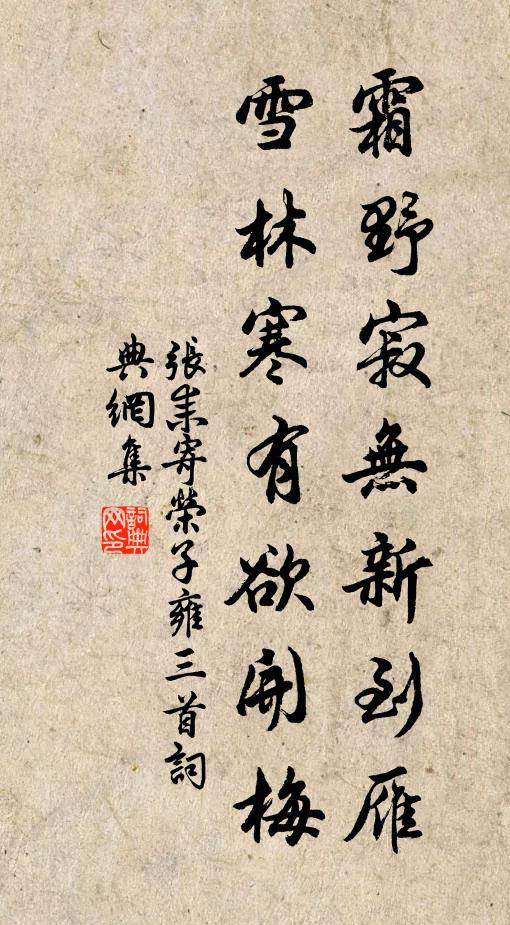 霜野寂無新到雁
雪林寒有欲開梅
張耒寄榮子雍三首詞
典網集
詞典网印